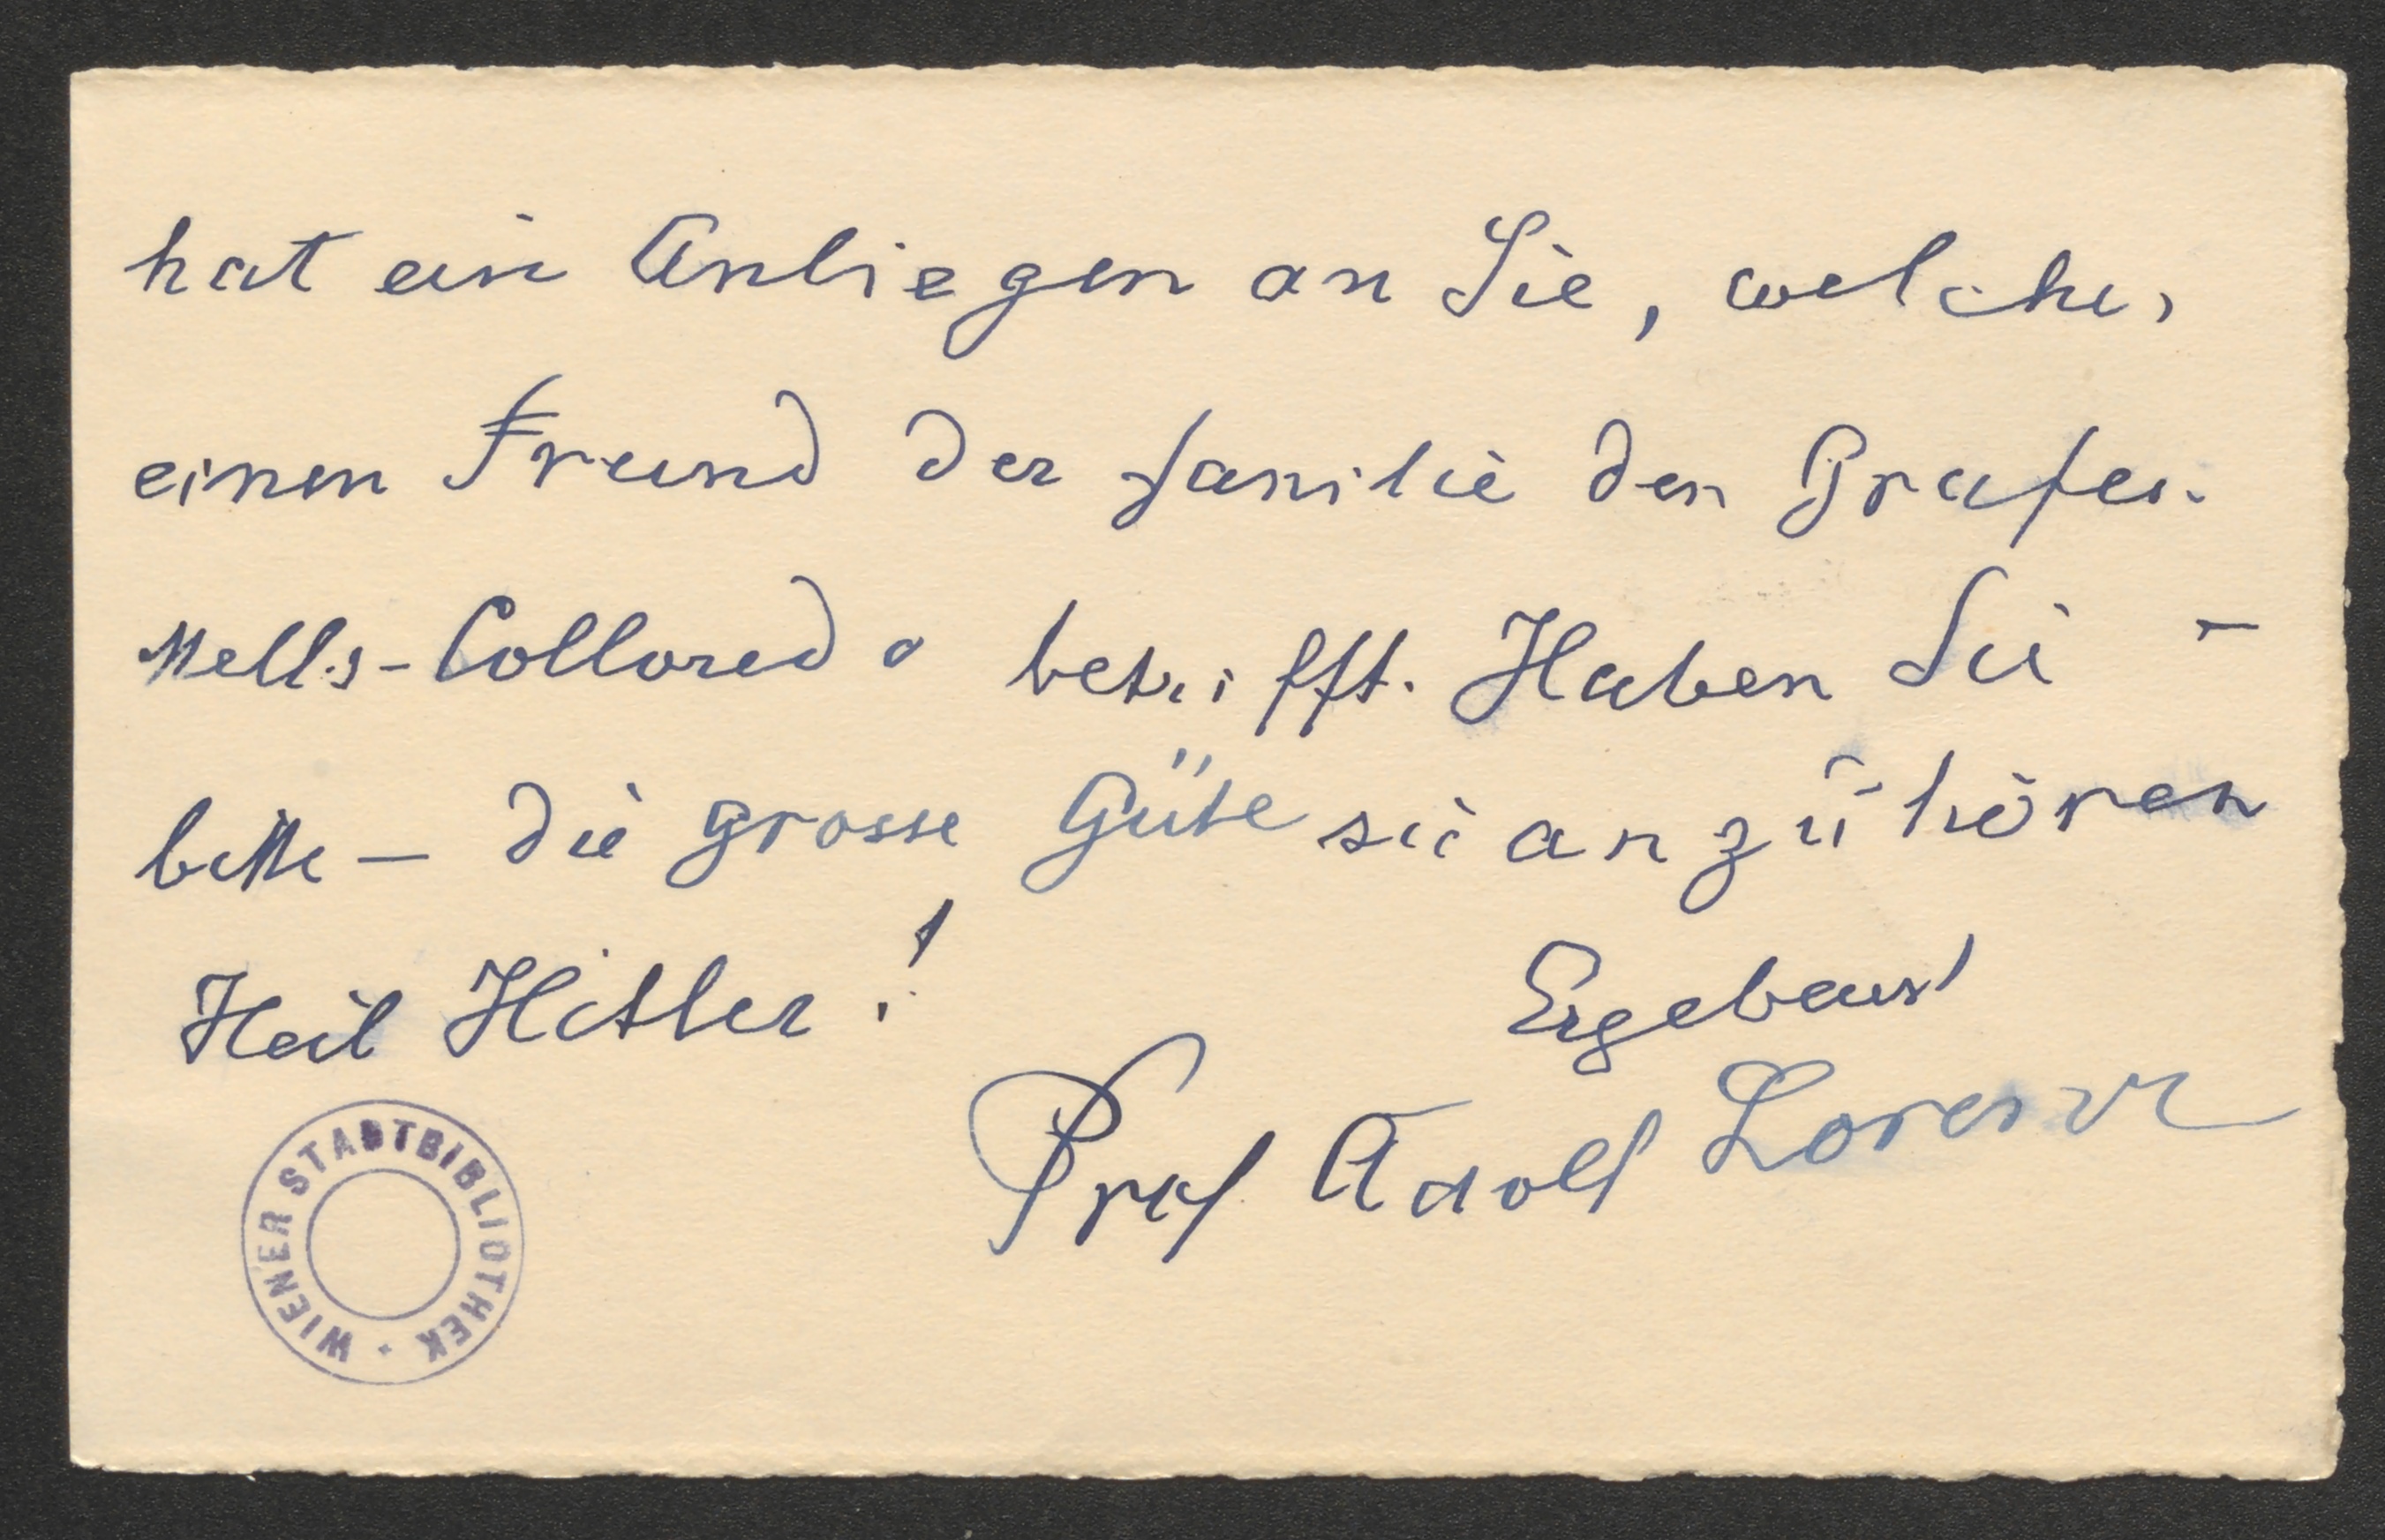 hat ein Anliegen an Sie, welches
einen Freund der Familie den Grafen
Mells-Collored o betrifft. Haben Sie –
bitte – die grosse Güte sie anzuhören
Heil Hitler! Ergebenst
Prof Adolf Lorenz
WIENER STADTBIBLIOTHEK